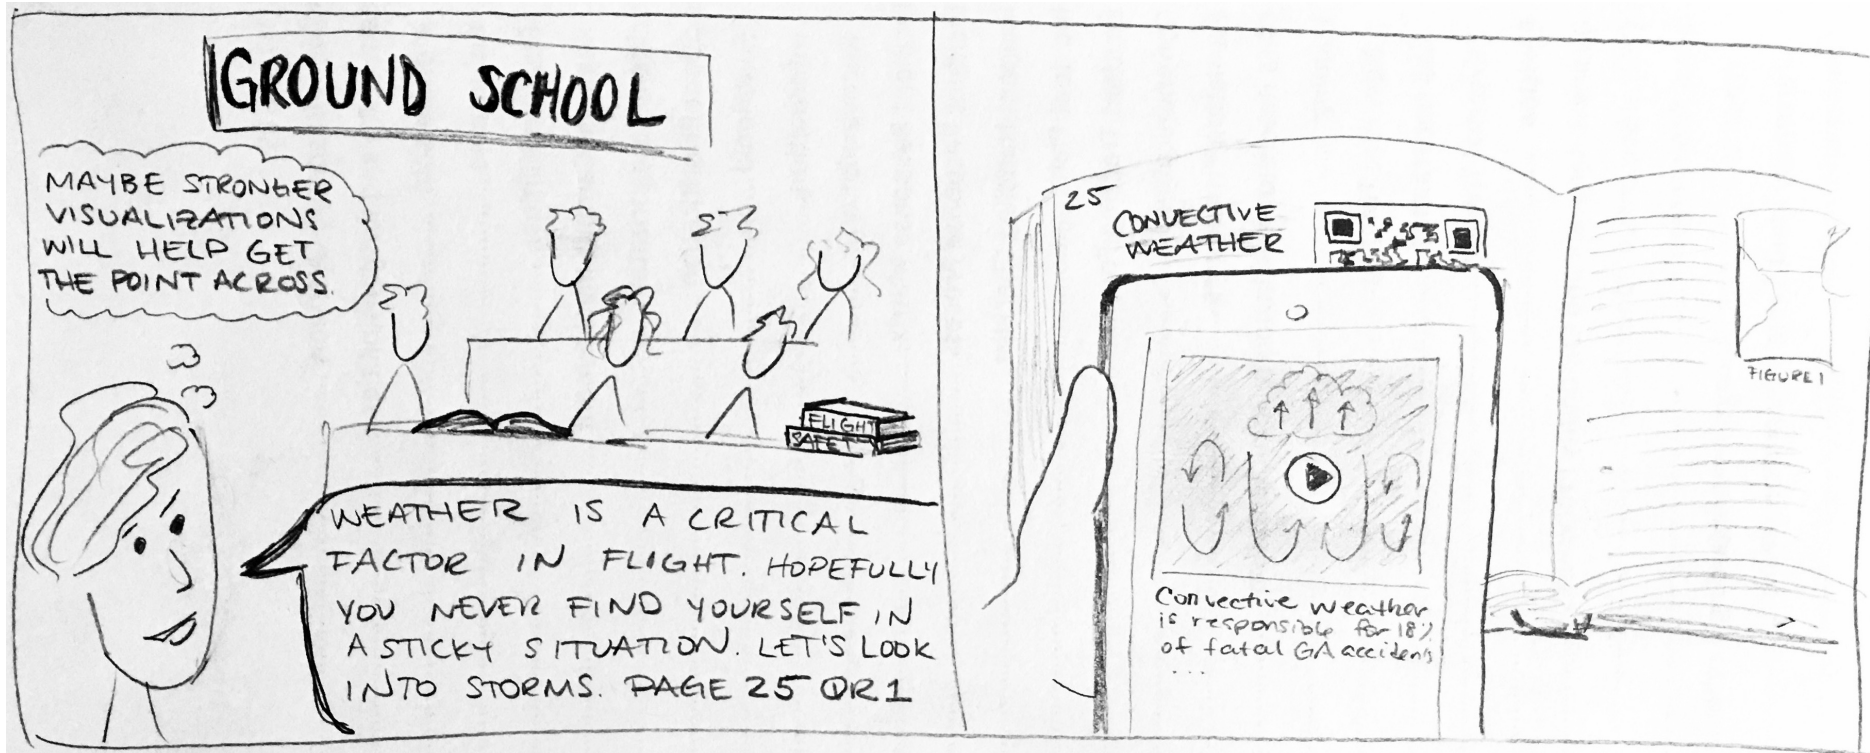 GROUND SCHOOL
MAYBE STRONGER
VISUALIZATIONS
WILL HELP GET
THE POINT ACROSS.
FLIGHT
SAFET
WEATHER IS A CRITICAL
FACTOR IN FLIGHT. HOPEFULLY
YOU NEVER FIND YOURSELF IN
A STICKY SITUATION. LET'S LOOK
INTO STORMS. PAGE 25 QR1
25
CONVECTIVE
WEATHER
FIGURE 1
Convective weather
is responsible for 18%
of fatal GA accidents
...